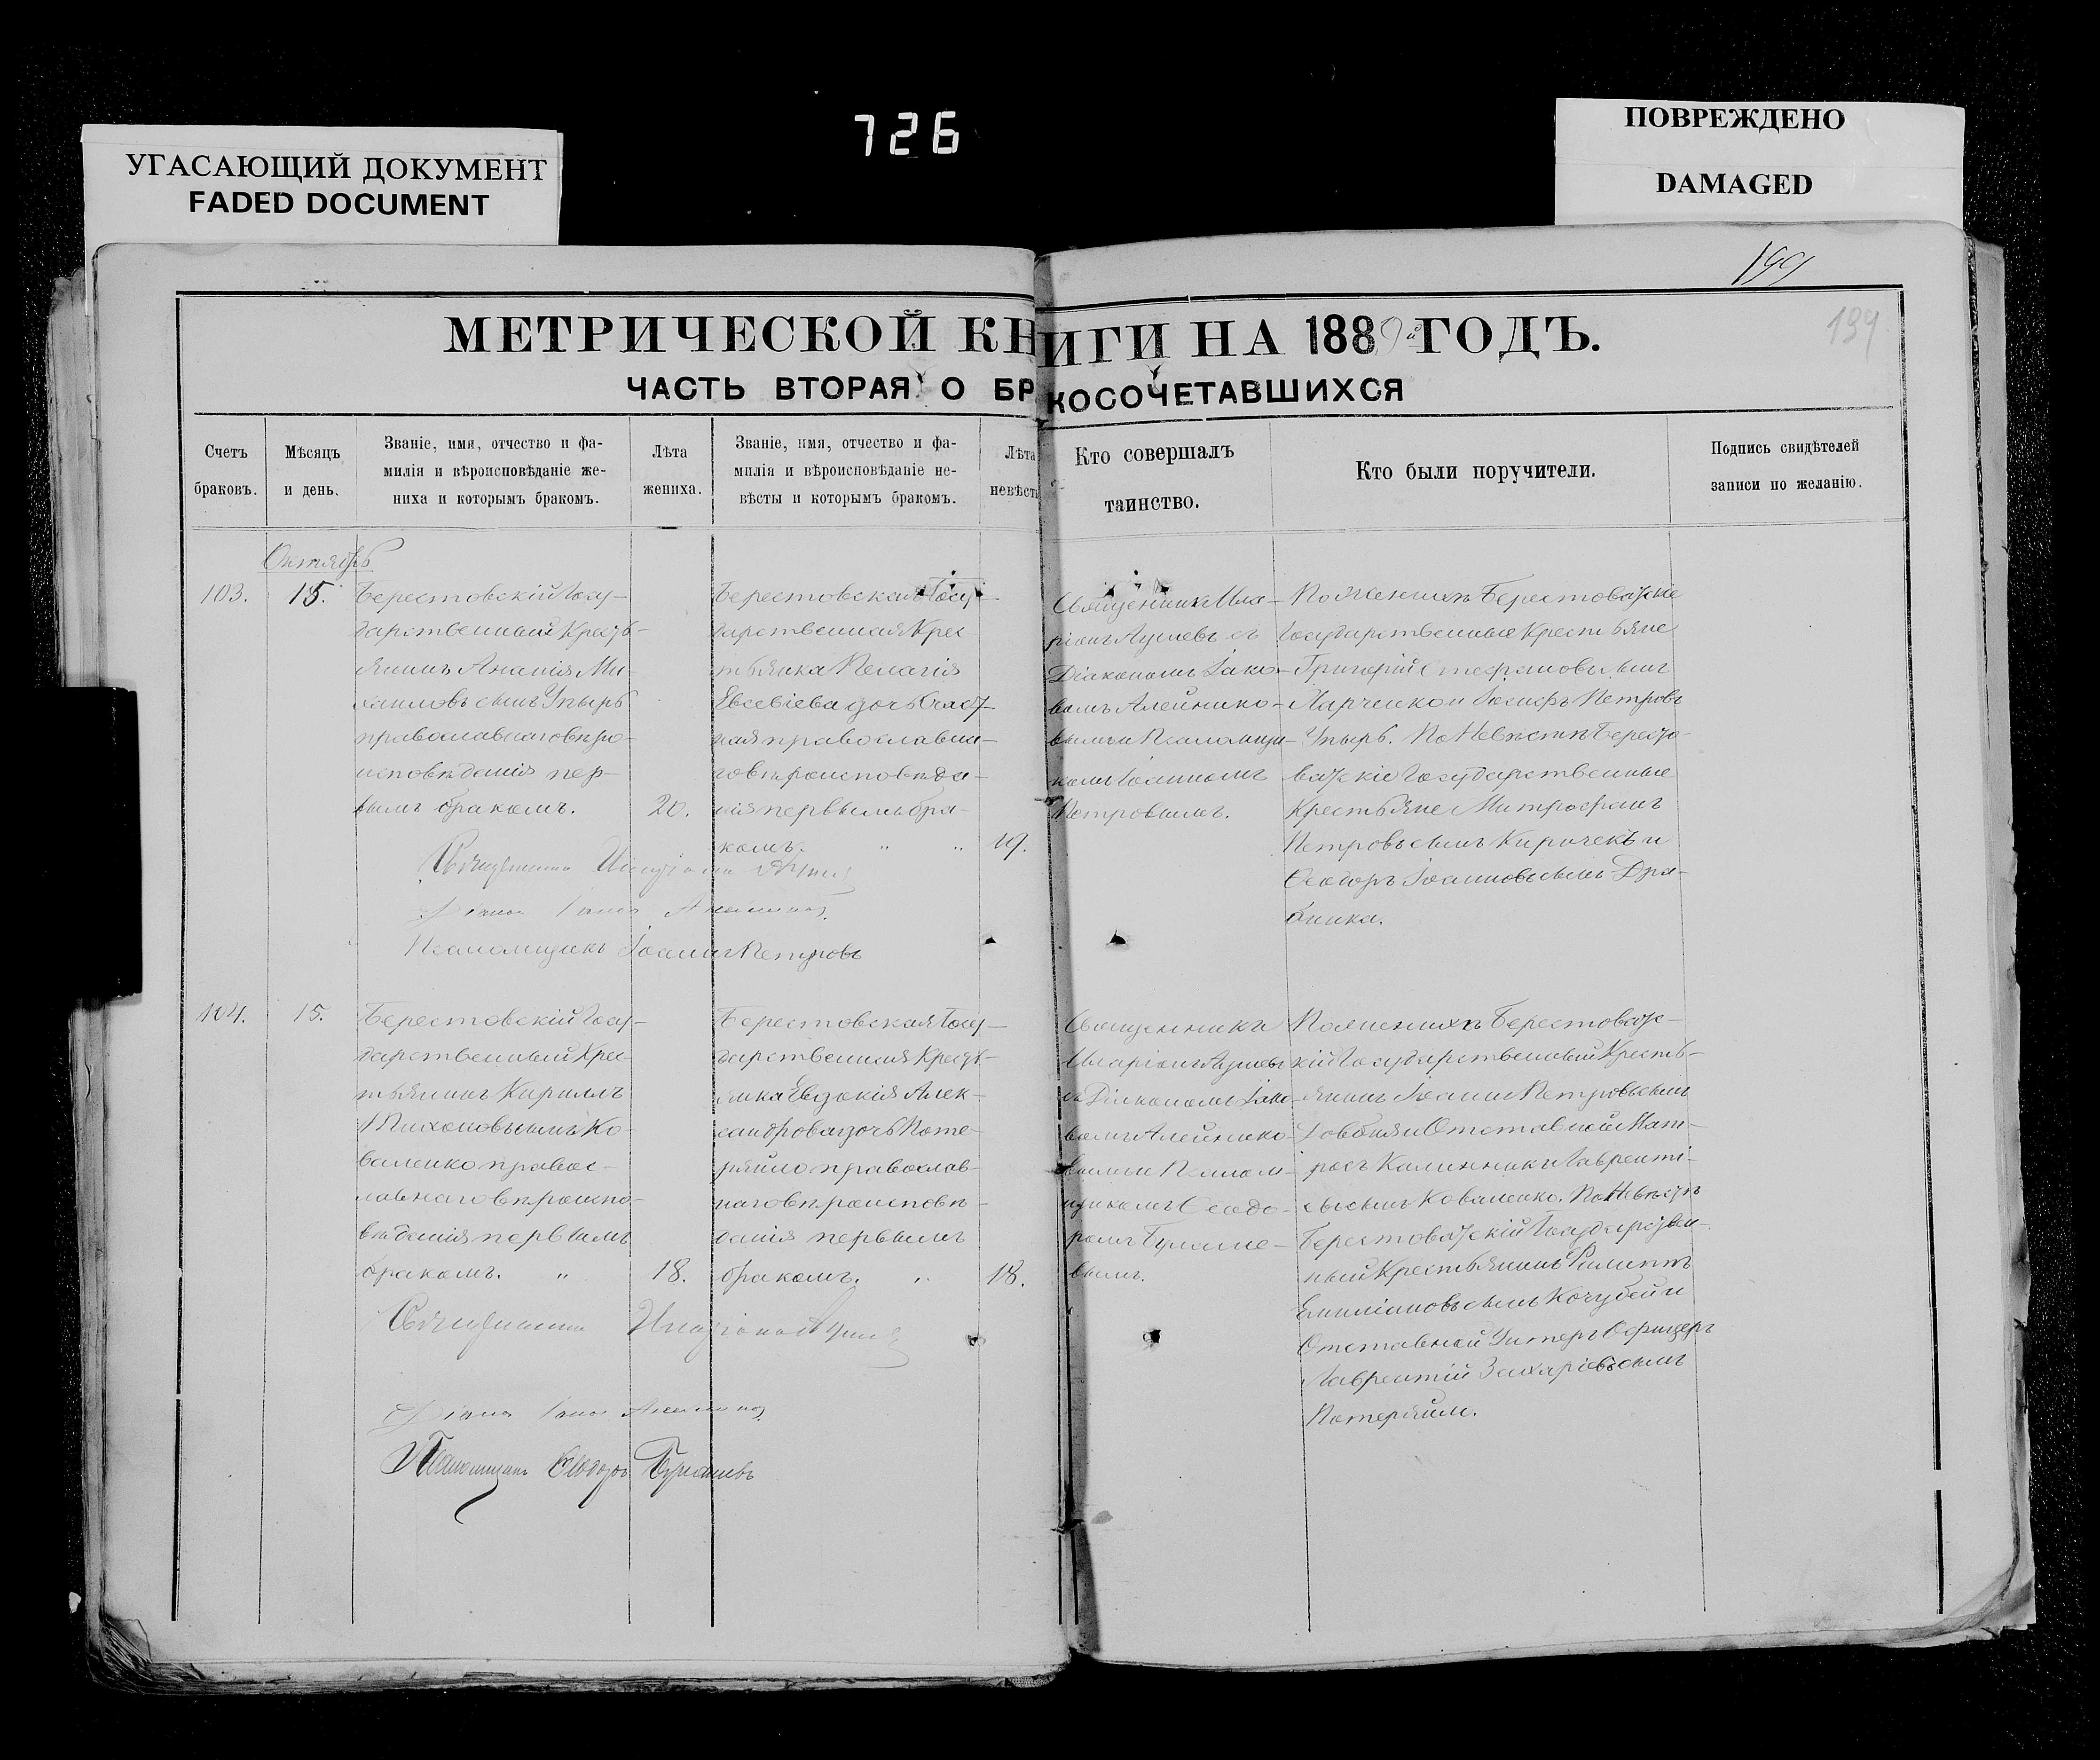 726
УГАСАЮЩИЙ ДОКУМЕНТ
FADED DOCUMENT
ПОВРЕЖДЕНО
DAMAGED
199
199
МЕТРИЧЕСКОЙ КНИГИ НА 1889й ГОДЪ.
ЧАСТЬ ВТОРАЯ О БРАКОСОЧЕТАВШИХСЯ
Счетъ
браковъ.
Мѣсяцъ
и день.
Званіе, имя, отчество и фа-
милія и вѣроисповѣданіе же-
ниха и которымъ бракомъ.
Лѣта
жениха.
Званіе, имя, отчество и фа-
милія и вѣроисповѣданіе не-
вѣсты и которымъ бракомъ.
Лѣта
невѣсты
Кто совершалъ
таинство.
Кто были поручители.
Подпись свидѣтелей
записи по желанію.
Октябрь
103.
15.
Берестовскій Госу-
дарственный Кресть-
янинъ Ананія Ми-
хаиловъ сынъ Упырь
православнаго вѣро-
исповѣданія пер-
вымъ бракомъ.
20.
Берестовская Госу-
дарственная Крес-
тьянка Пелагія
Евсевіева дочь
ная православна-
го вѣроисповѣда-
нія первымъ бра-
комъ. " "
19.
Священникъ Ила-
ріонъ съ
Діакономъ Іако-
вомъ Алейнико-
вымъ и Псаломщи-
комъ Іоанномъ
Петровымъ.
По Женихѣ Берестовскіе
Государственные Крестьяне
Григорій Стефановъ сынъ
Харченко и Іосифъ Петровъ
Упырь. По Невѣстѣ Бересто-
вскіе Государственные
Крестьяне Митрофанъ
Петровъ сынъ Киричекъ и
Ѳеодоръ Іоанновъ сынъ Дра-
бинка.
Священникъ Иларіонъ
Діаконъ Іаковъ Алейниковъ
Псаломщикъ Іоаннъ Петровъ
104.
15.
Берестовскій Госу-
дарственный Крес-
тьянинъ Кириллъ
Тихоновъ сынъ Ко-
валенко правос-
лавнаго вѣроиспо-
вѣданія первымъ
бракомъ. "
18.
Берестовская Госу-
дарственная Кресть-
янка Евдокія Алек-
сандрова дочь Поте-
ряйло православ-
наго вѣроисповѣ-
данія первымъ
бракомъ. "
18.
Священникъ
Иларіонъ
съ Діакономъ Іако-
вомъ Алейнико-
вымъ и Псалом-
щикомъ Ѳеодо-
ромъ Бураше-
вымъ.
По женихѣ Берестовс-
кій Государственный Кресть-
янинъ Іоаннъ Петровъ сынъ
Довбня и Отставной Мат-
росъ Калинникъ Лавренті-
евъ сынъ Коваленко. По Невѣстѣ
Берестовскій Государствен-
ный Крестьянинъ Филиппъ
Емиліановъ сынъ Кочубей и
Отставной Унтеръ Офицеръ
Лаврентій Захаріевъ сынъ
Потеряйло.
Священникъ Иларіонъ
Діаконъ Іаковъ Алейниковъ
Псаломщикъ Ѳеодоръ Бурашевъ